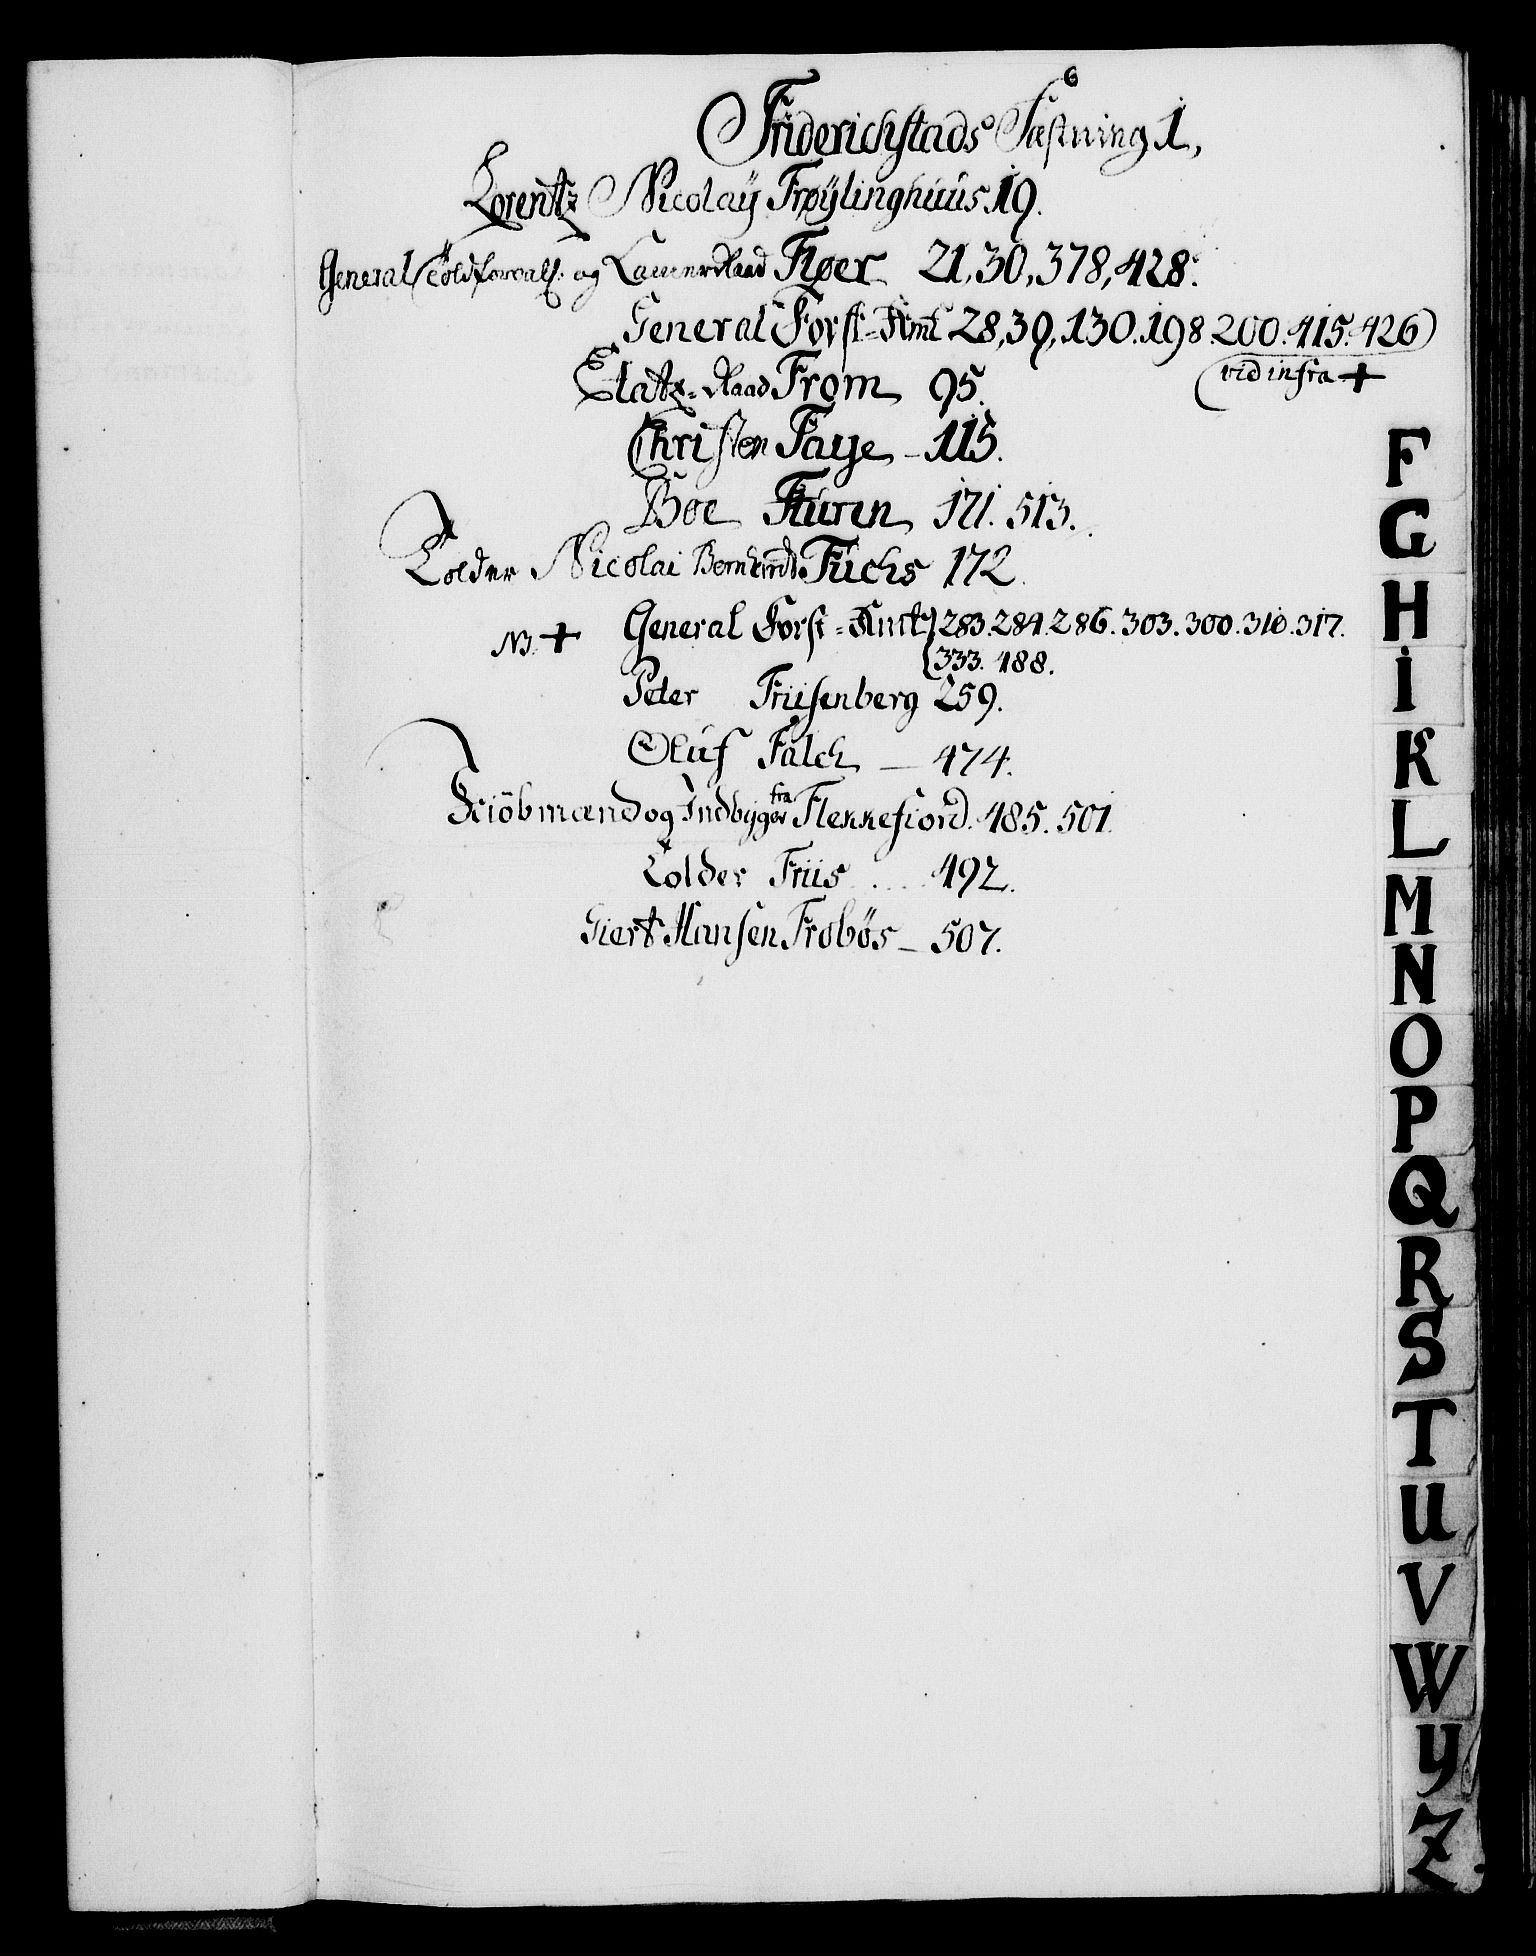 6
Friderichstads Fæstning 1,
Lorentz Nicolaÿ Frøÿlinghuus 19.
General Toldforvalt: og Camer Raad Fløer 21, 30, 378, 428.
General Forst-Amt 28, 39, 130. 198. 200. 415. 426
vid infra +
Etatz-Raad From 95.
Christen Faye - 115.
Boe Furen 171. 513.
Tolder Nicolai Bernhardt Fuchs 172.
NB. + General Forst-Amt 283. 284. 286. 303. 300. 310. 317.
333. 488.
Peter Friisenberg 259.
Oluf Falch - 474.
Kiöbmænd og Indbyger fra Flekkefiord. 485. 501.
Tolder Friis .... 492.
Giert Hansen Frobös - 507.
F
G
H
I
K
L
M
N
O
P
Q
R
S
T
U
V
W
Y
Z